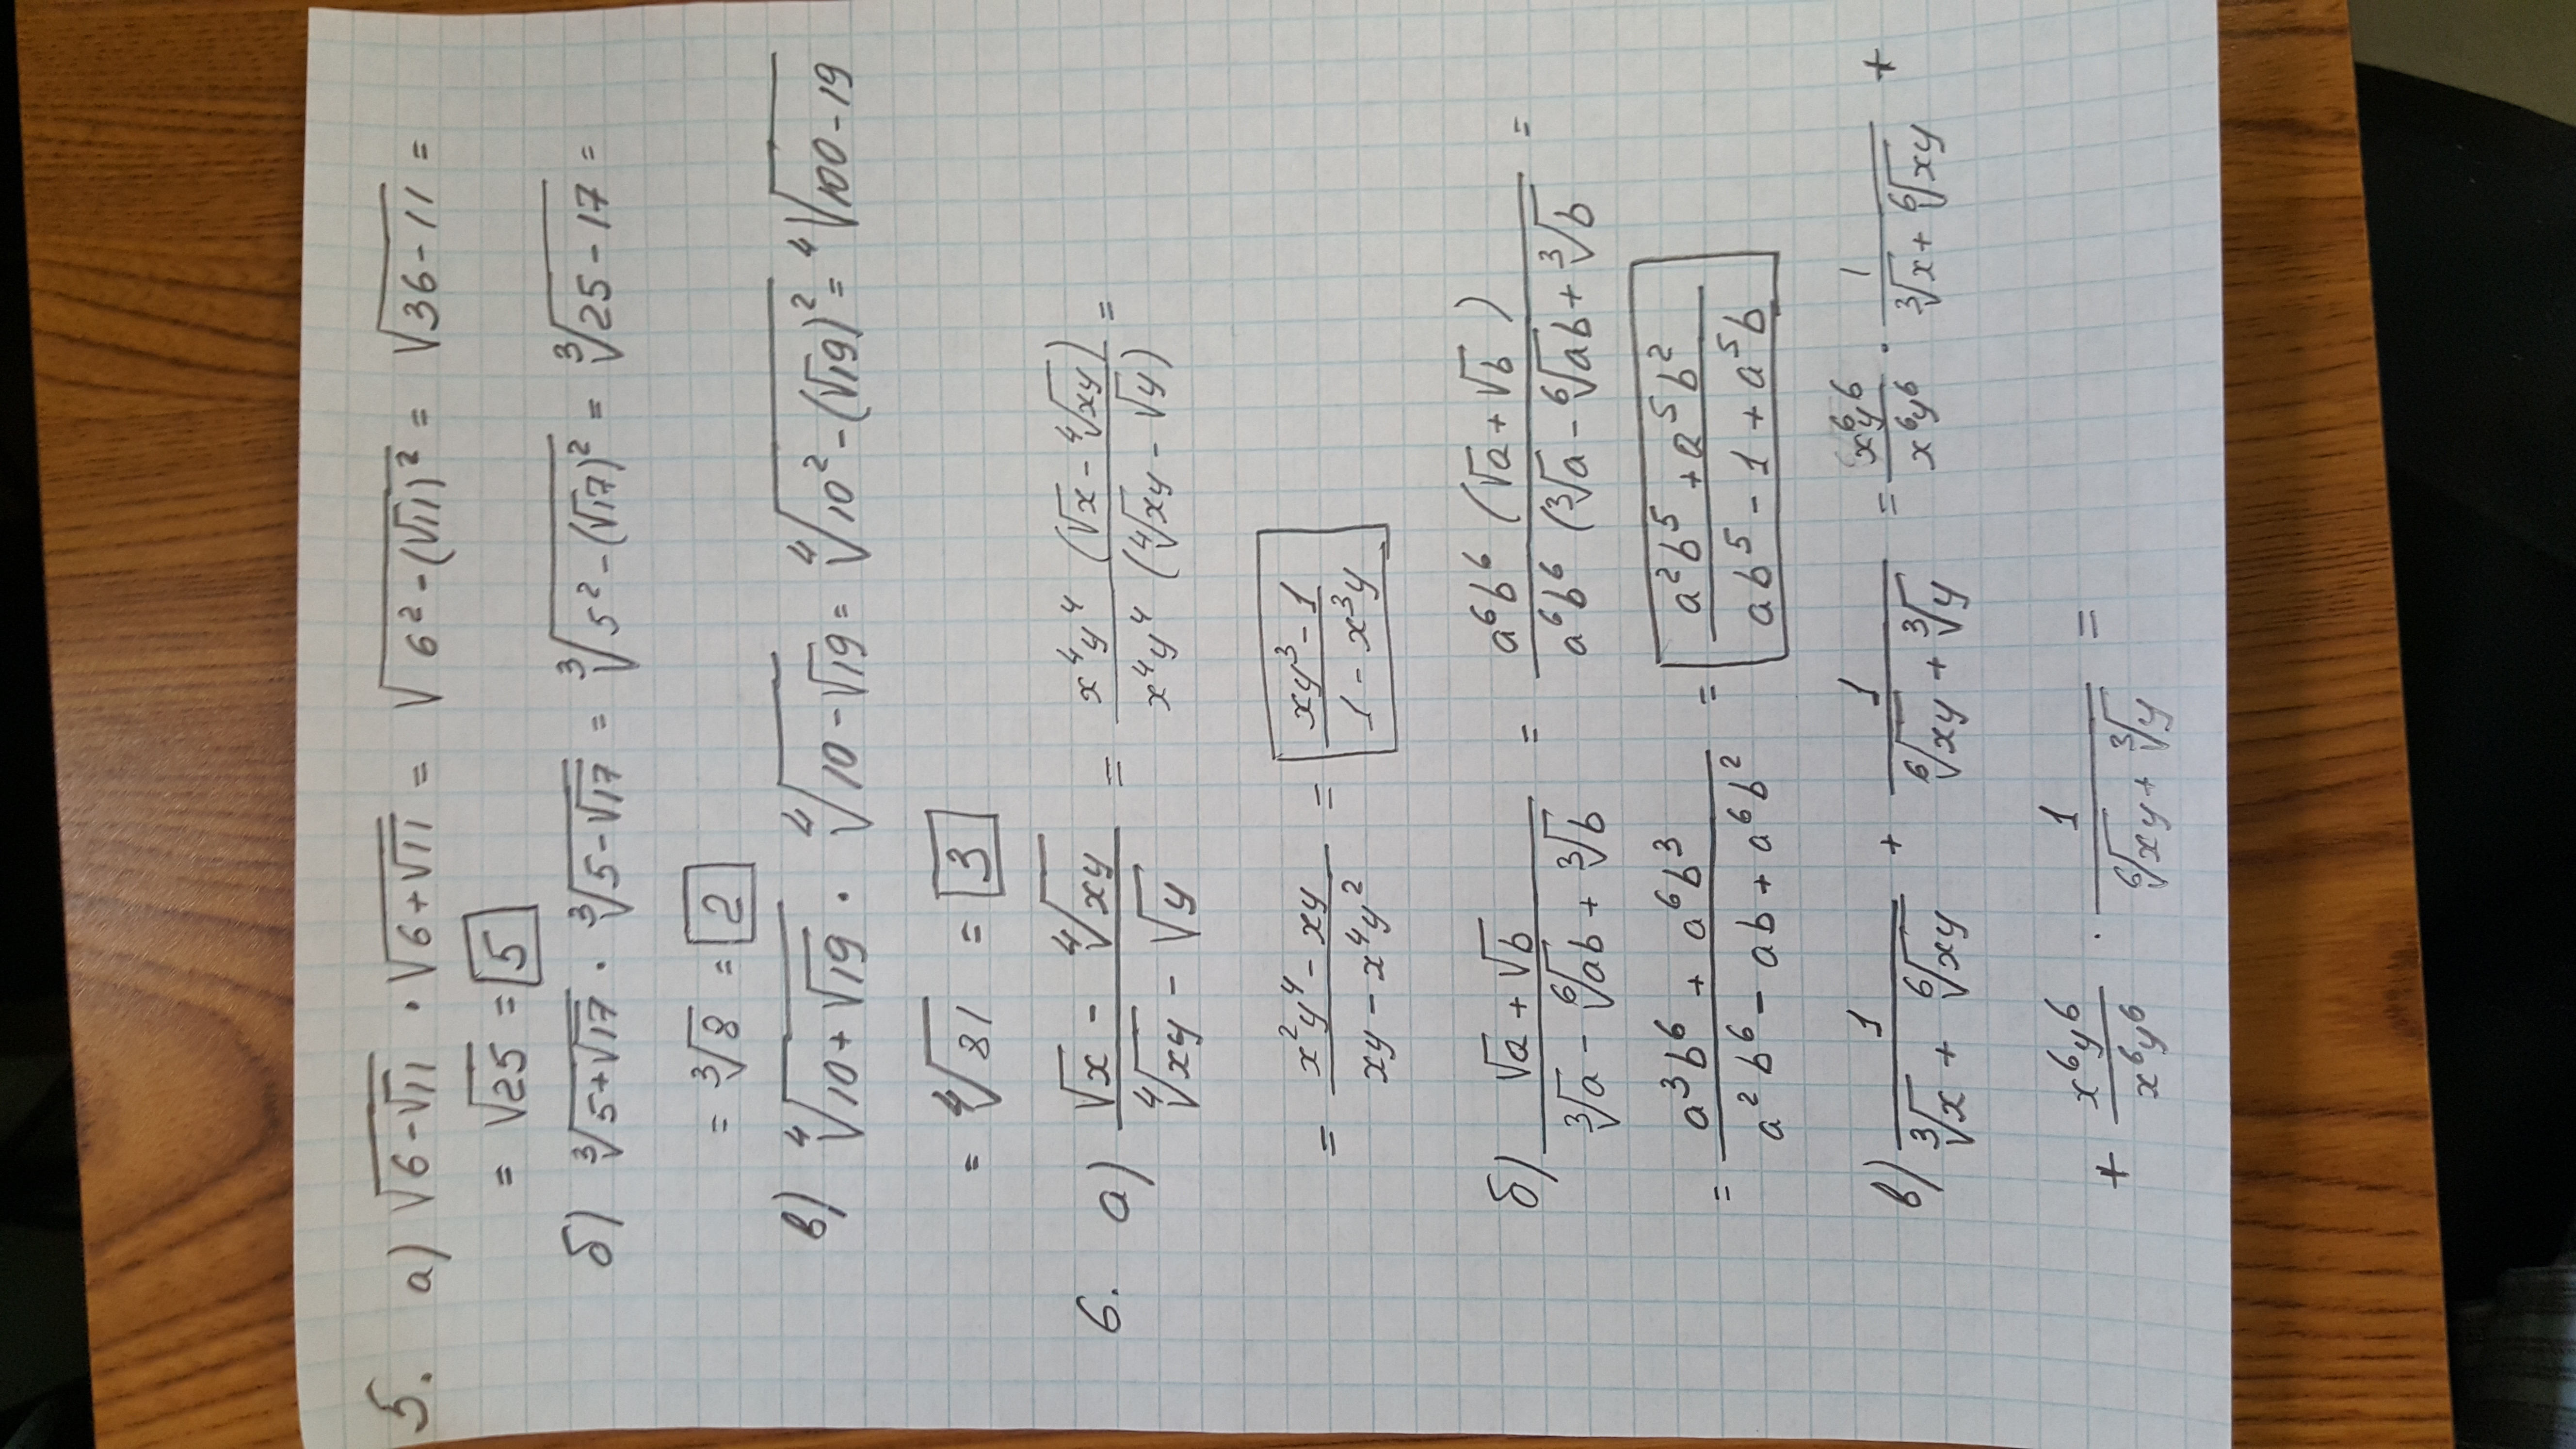 5. а) √(6-√11) · √(6+√11) = √(6²-(√11)²) = √(36-11) =
= √25 = 5
б) ³√(5+√17) · ³√(5-√17) = ³√(5²-(√17)²) = ³√(25-17) =
= ³√8 = 2
в) ⁴√(10+√19) · ⁴√(10-√19) = ⁴√(10²-(√19)²) = ⁴√(100-19)
= ⁴√81 = 3
6. а) (√x - ⁴√(xy))/(⁴√(xy) - √y) = (x⁴y⁴ (√x - ⁴√(xy)))/(x⁴y⁴ (⁴√(xy) - √y)) =
= (x²y⁴ - xy)/(xy - x⁴y²) = (xy³ - 1)/(1 - x³y)
б) (√a + √b)/(³√a - ⁶√(ab) + ³√b) = (a⁶b⁶ (√a + √b))/(a⁶b⁶ (³√a - ⁶√(ab) + ³√b)) =
= (a³b⁶ + a⁶b³)/(a²b⁶ - ab + a⁶b²) = (a²b⁵ + a⁵b²)/(ab⁵ - 1 + a⁵b)
в) 1/(³√x + ⁶√(xy)) + 1/(⁶√(xy) + ³√y) = x⁶y⁶/x⁶y⁶ · 1/(³√x + ⁶√(xy)) +
+ x⁶y⁶/x⁶y⁶ · 1/(⁶√(xy) + ³√y) =